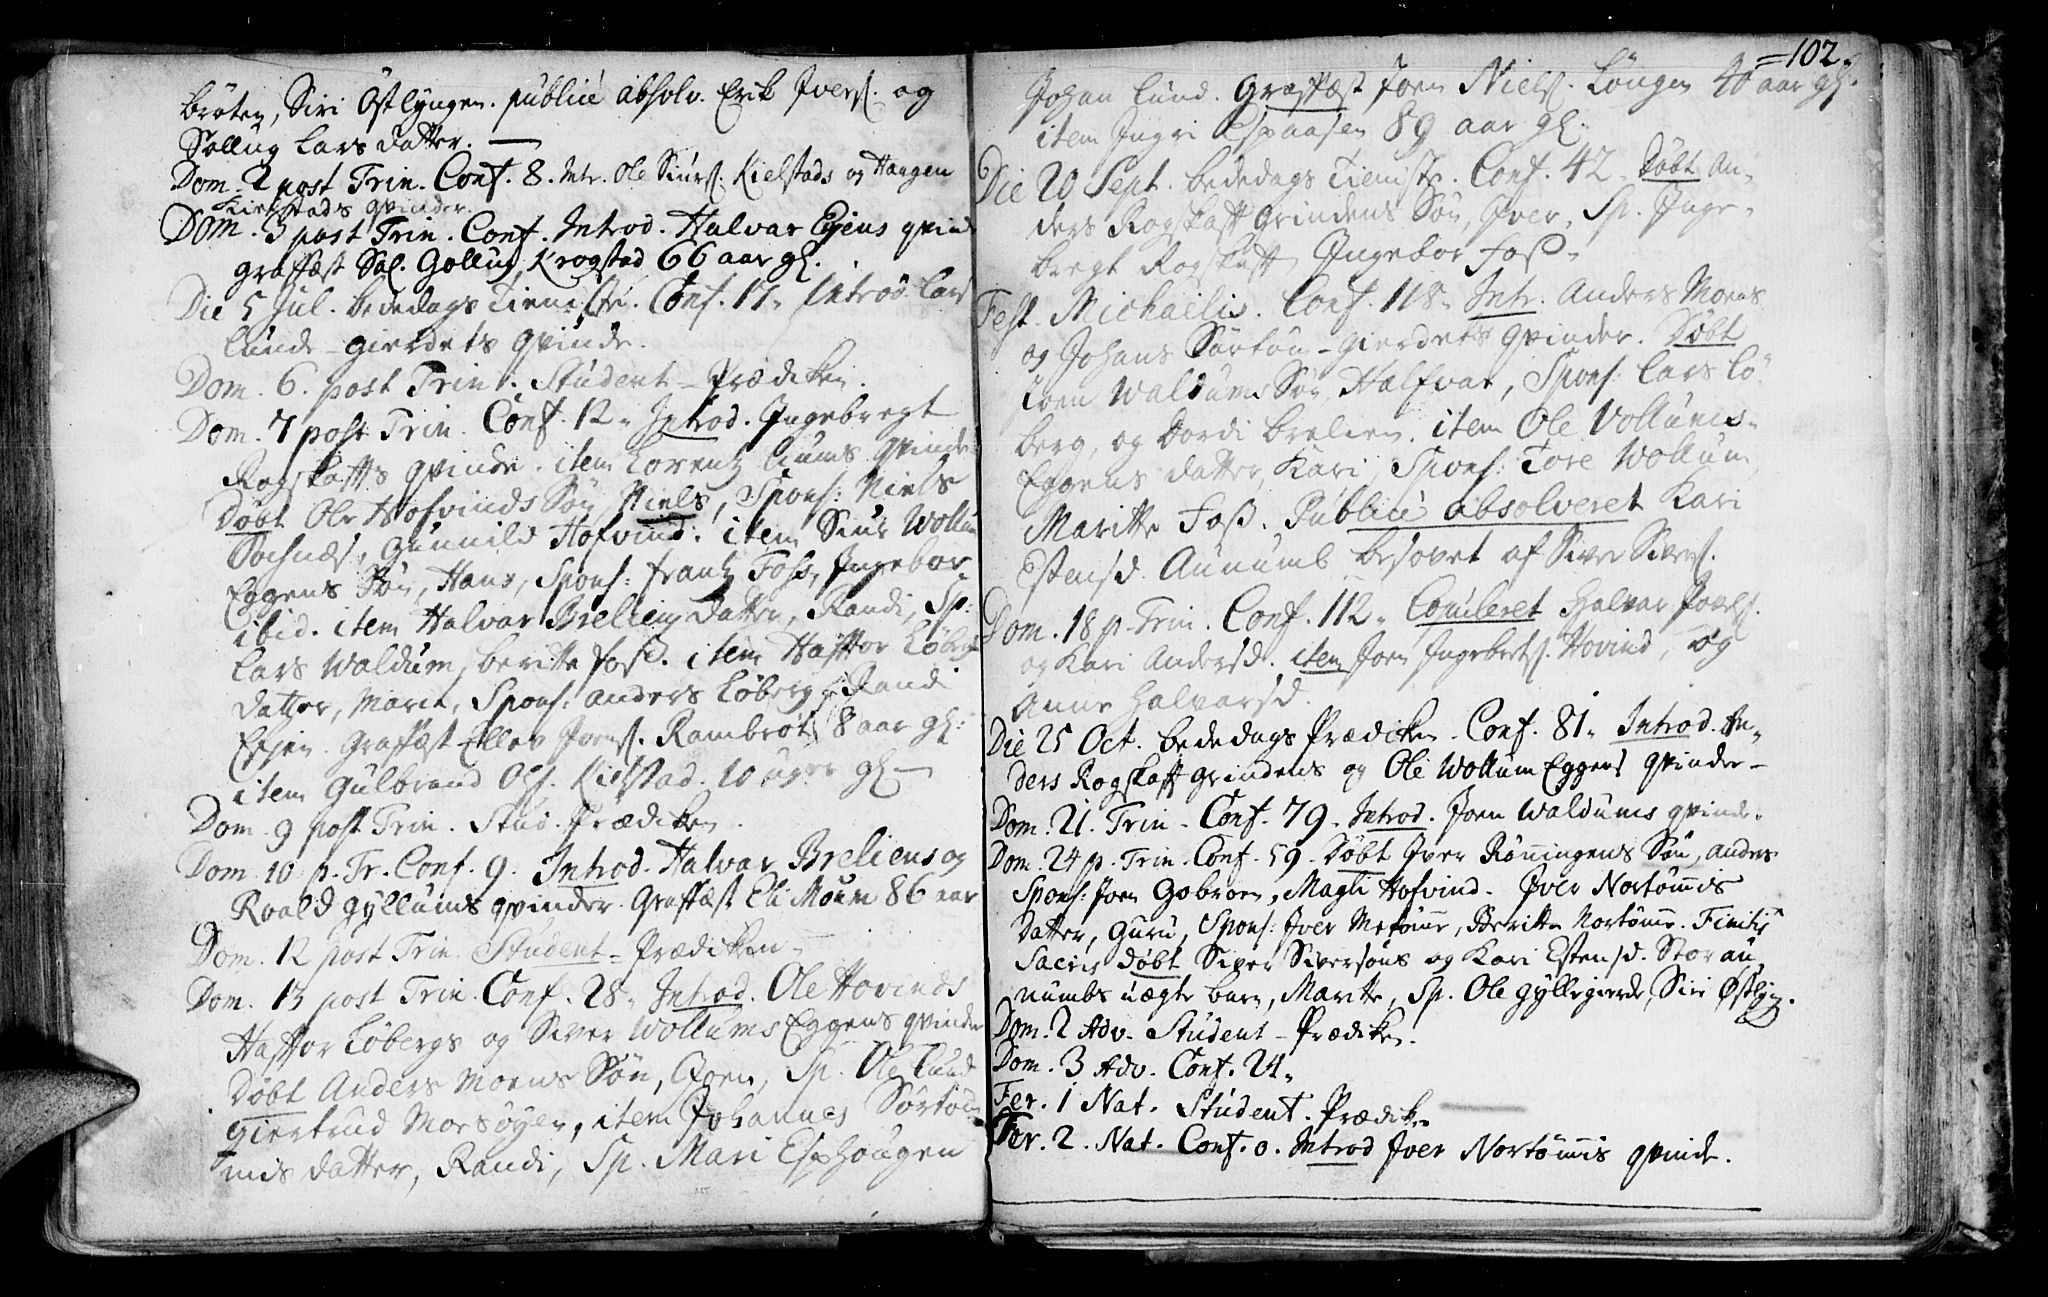 bröten, Siri Östlyngen. publicè absolv. Erik Ivers. og
Sollug Lars datter. —
Dom. 2 post Trin. Conf. 8. Intr. Ole Siurs. Kielstads og Haagen
Kielstads qvinder.
Dom. 3 post Trin. Conf. Introd. Halvar Eiens qvinde
graffæst Sal. Gollug Krogstad 66 aar gl.
Die 5 Jul. bededags Tieniste. Conf. 17. Introd. Lars
Lunde-gierdets qvinde.
Dom. 6. post Trin. Student-Prædiken.
Dom. 7 post Trin. Conf. 12. Introd. Ingebregt
Rogskaffs qvinde. item Lorentz Aunes qvinde
Döbt Ole Hofvinds Sön, Niels, Spons: Niels
Sochnæs, Gunnild Hofvind. item Siur Wollum
Eggens Sön, Hans, Spons: frantz Foss, Ingebor
ibid. item Halvar Breliens Datter, Randi, Sp:
Lars Waldum, beritte foss. item Haffor Löbergs
datter, Marit, Spons: anders Löberg, Randi
Eyien. Graffæst Ellev Joens. Rambrot 8 aar gl:
item Gulbrand Ols. Kielstad 10 uger gl —
Dom. 9 post Trin. Stud. Prædiken.
Dom. 10 p. Tr. Conf. 9. Introd. Halvar Breliens og
Roald Gyllums qvinder. Graffæst Eli Moum 86 aar
Dom. 12 post Trin. Student-Prædiken —
Dom. 13 post Trin. Conf. 28. Introd. Ole Hovinds
Haffor Löbergs og Siver Wollums Eggens qvinder
Döbt Anders Moens Sön, Joen, Sp. Ole Lund
giertrud Morsöyen, item Johannes Sörtöm
mis datter, Randi, Sp. Mari Esphougen
=102.
Johan Lund. Graffæst Joen Niels. Löngen 40 aar gl.
item Ingri Espaasen 89 aar gl.
Die 20 Sept. bededags Tieniste. Conf. 42. Döbt An-
ders Rogskaff grindens Sön, Iver, Sp. Inge-
bregt Rogskaff Ingebor Foss.
Fest. Michaëlis. Conf. 118. Intr. Anders Moens
og Johans Sörtöm-gierdets qvinder. Döbt
Joen Waldums Sön Halfvar, Spons: Lars Lö-
berg, og Dordi Brelien. item Ole Vollums-
Eggens datter, Kari, Spons: Tore Wollum
Maritte Foss. Publicè absolveret Kari
Estensd. Aunumb besovet af Siver Sivers.
Dom. 18 p. Trin. Conf. 112. Copuleret Halvar Poels.
og Kari Andersd. item Joen Ingebrets. Hovind, og
Anne Halvarsd.
Die 25 Oct. bededags Prædiken. Conf. 81. Introd. An-
ders Rogskaff grindens og Ole Wollum Eggens qvinder —
Dom. 21. Trin. Conf. 79. Introd. Joen Waldums qvinde.
Dom. 24 p. Trin. Conf. 59. Döbt Iver Röningens Sön, anders
Spons: Joen Gobroen, Magli Hofvind. Iver Nortömmis
Datter, Guru, Spons: Iver Metömme, Beritte Nortömme. Finitis
Sacris döbt Siver Siversöns og Kari Estensd. Storau
numbs uægte barn, Maritte, Sp. Ole Gyllegierde, Siri Östlyng.
Dom. 2 Adv. Student-Prædiken.
Dom. 3 Adv. Conf. 24.
Fer. 1 Nat. Student. Prædiken
Fer. 2. Nat. Conf. 0. Introd Iver Nortömmis qvinde.